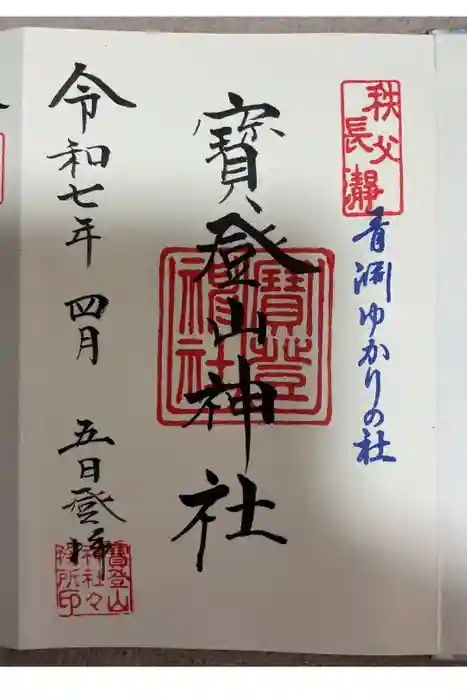 秩父
長瀞
青淵ゆかりの社
寳登山神社
寳登
山神社
令和七年 四月 五日登拝
寳登山
神社々
務所印